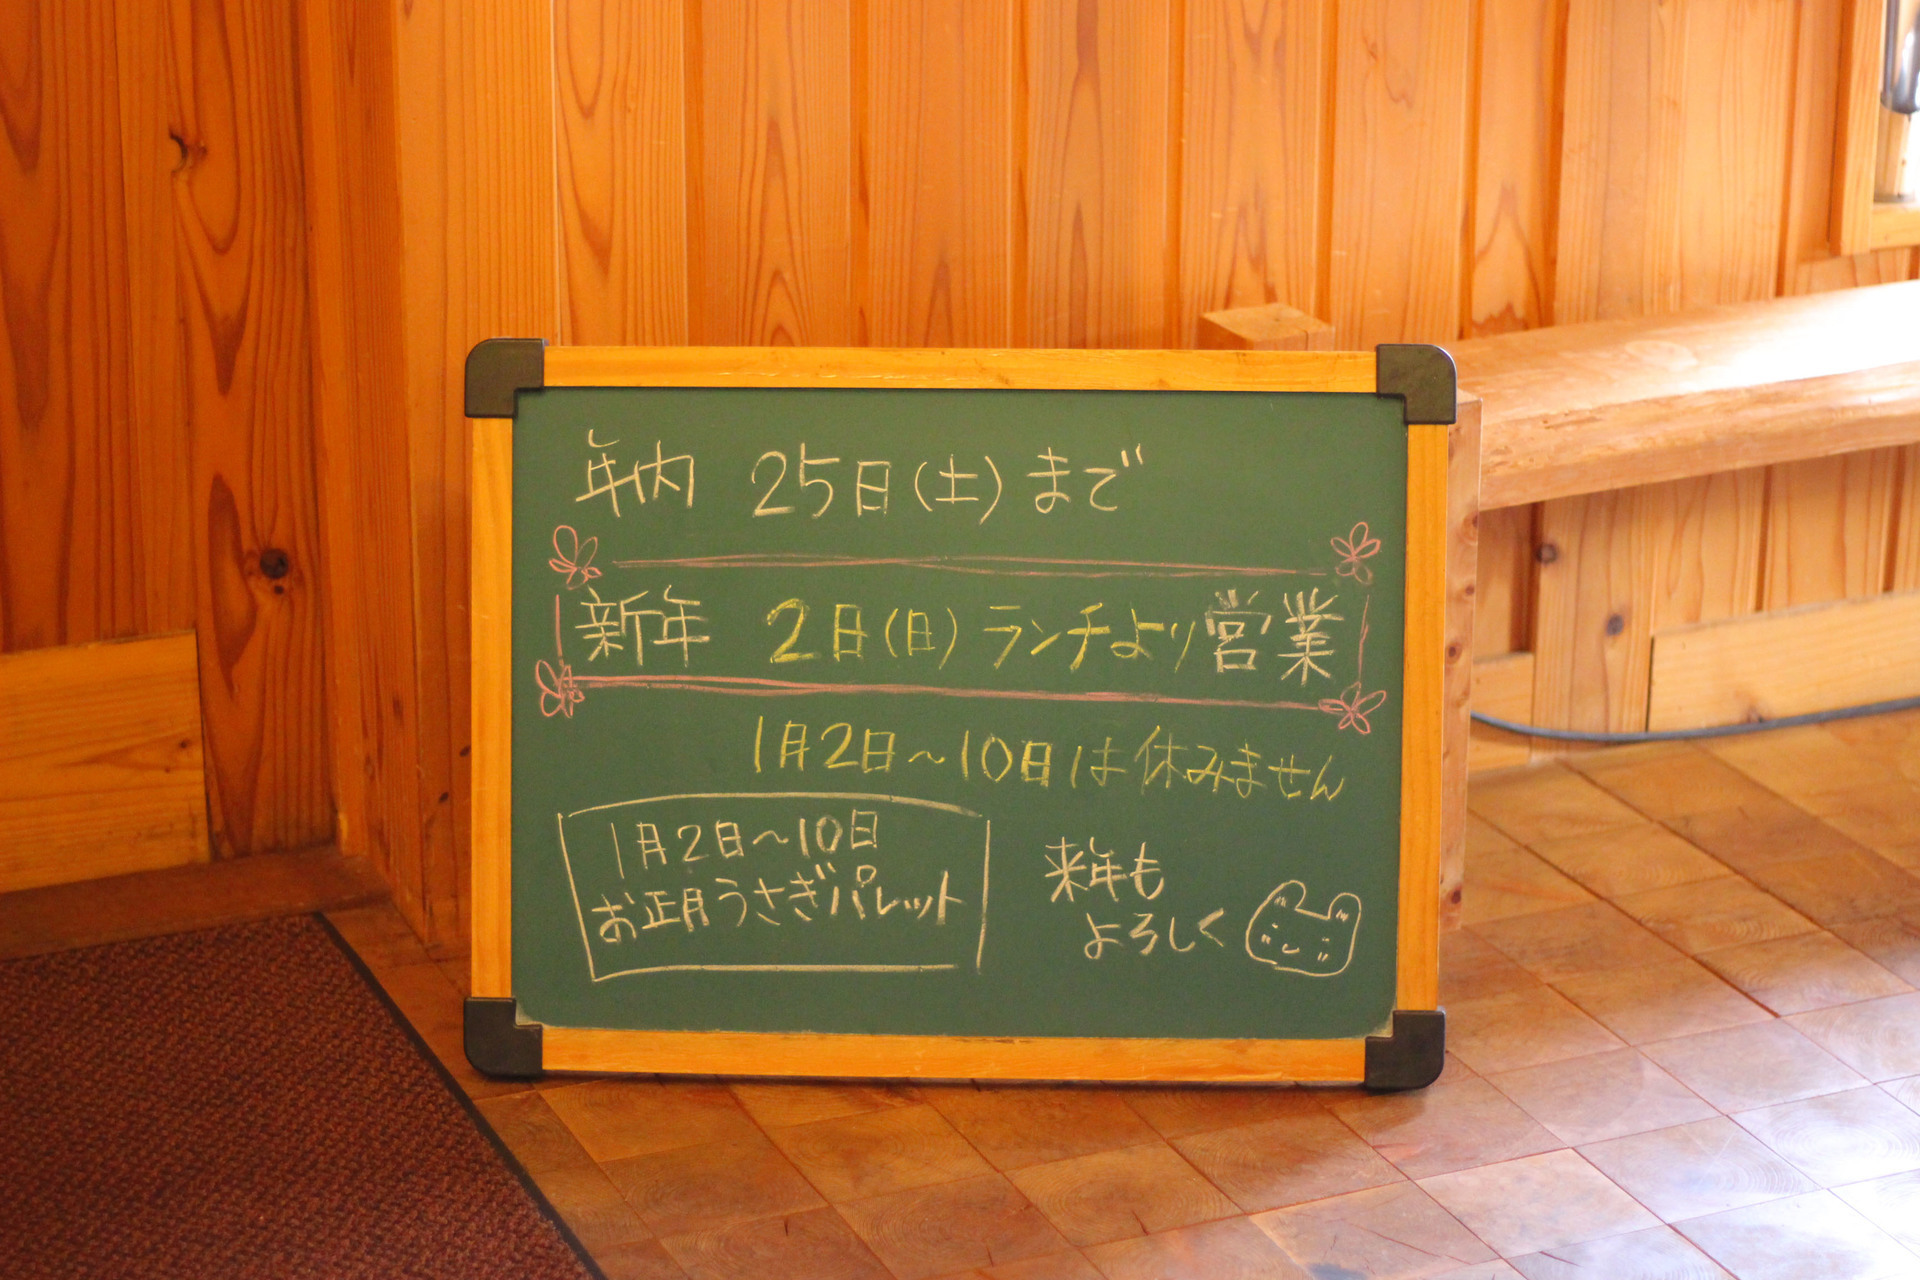 年内 25日(土)まで
新年 2日(日)ランチより営業
1月2日～10日は休みません
1月2日～10日
お正月うさぎパレット
来年も
よろしく